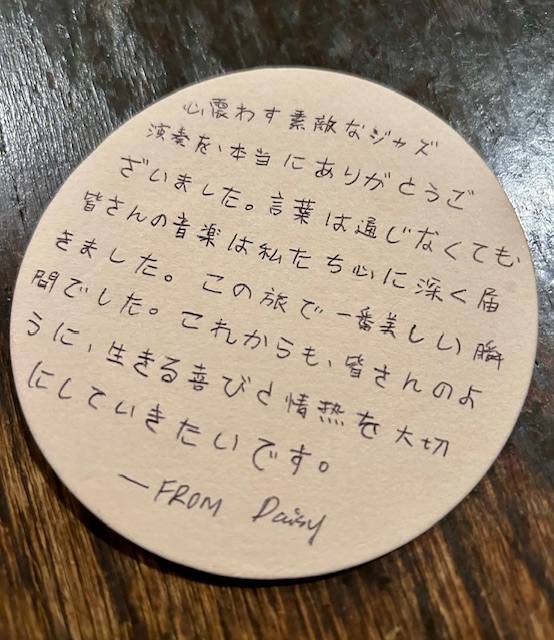 心震わす素敵なジャズ
演奏を、本当にありがとうご
ざいました。言葉は通じなくても、
皆さんの音楽は私たち心に深く届
きました。この旅で一番美しい瞬
間でした。これからも、皆さんのよ
うに、生きる喜びと情熱を大切
にしていきたいです。
—FROM Daisy